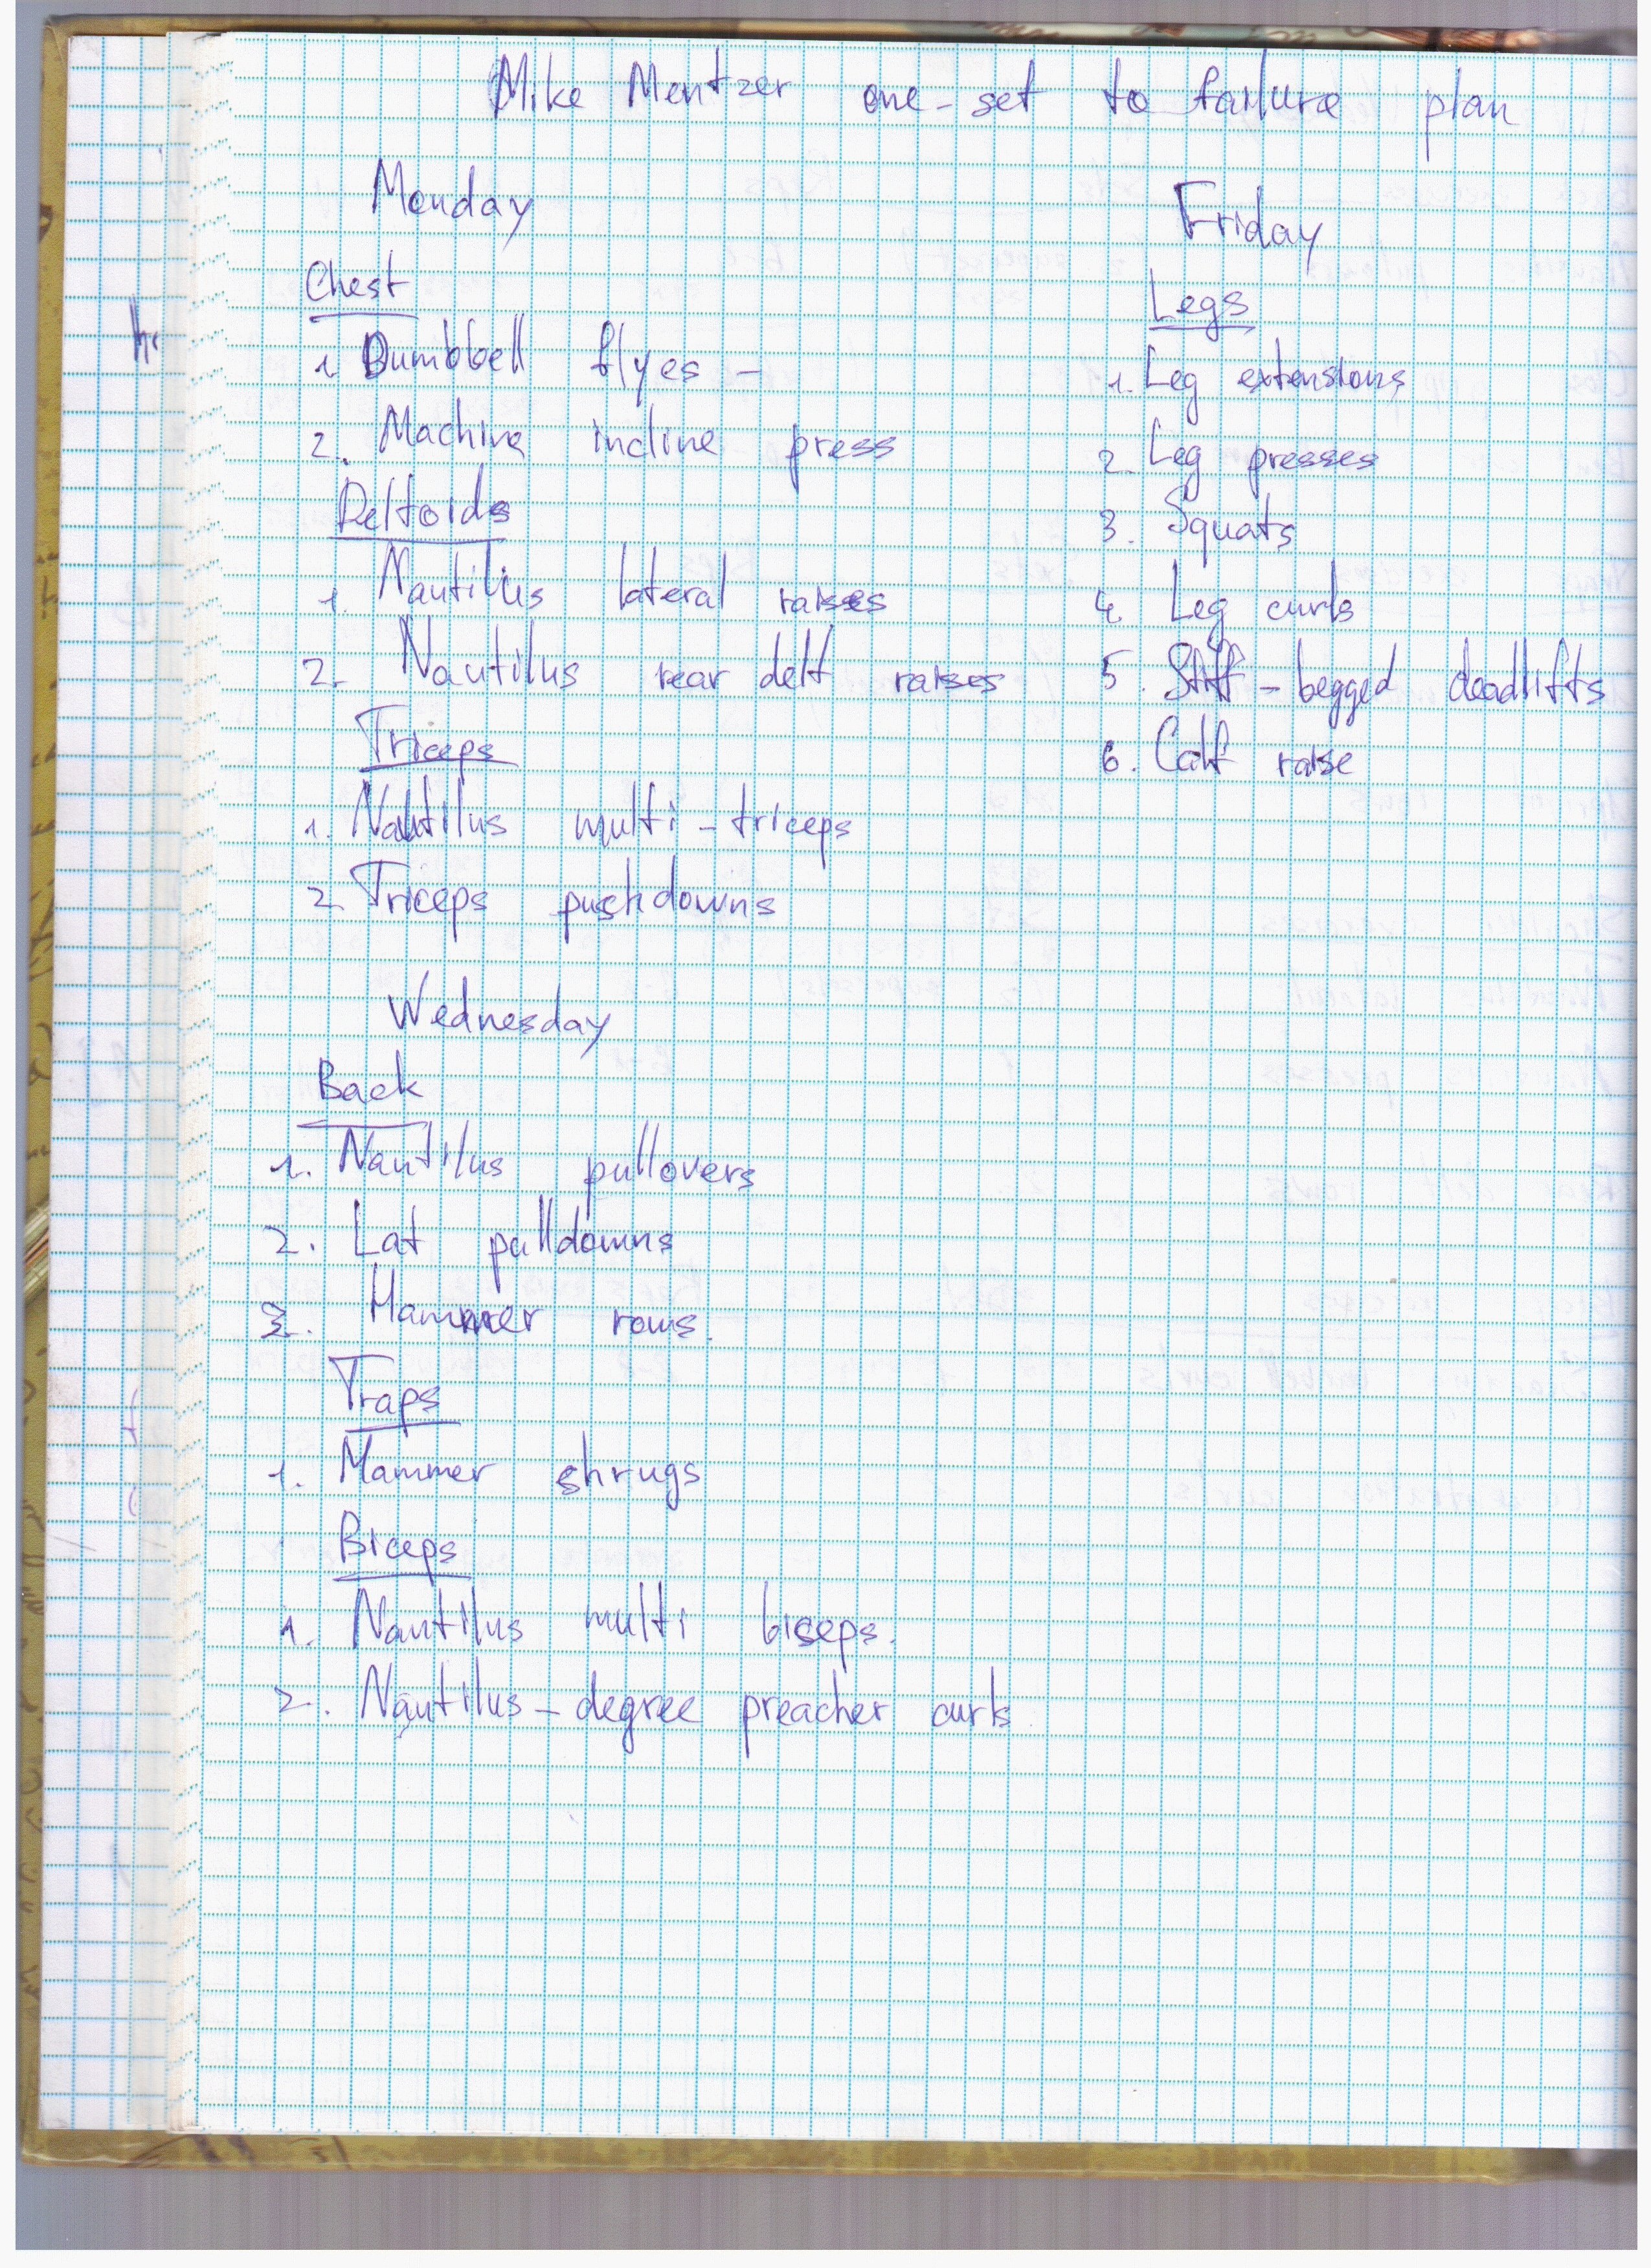 Mike Mentzer one-set to failure plan
Monday
Chest
1. Dumbbell flyes -
2. Machine incline press
Deltoids
1. Nautilus lateral raises
2. Nautilus rear delt raises
Triceps
1. Nautilus multi-triceps
2. Triceps pushdowns
Wednesday
Back
1. Nautilus pullovers
2. Lat pulldowns
3. Hammer rows.
Traps
1. Hammer shrugs
Biceps
1. Nautilus multi biceps.
2. Nautilus-degree preacher curls
Friday
Legs
1. Leg extensions
2. Leg presses
3. Squats
4. Leg curls
5. Stiff-legged deadlifts
6. Calf raise